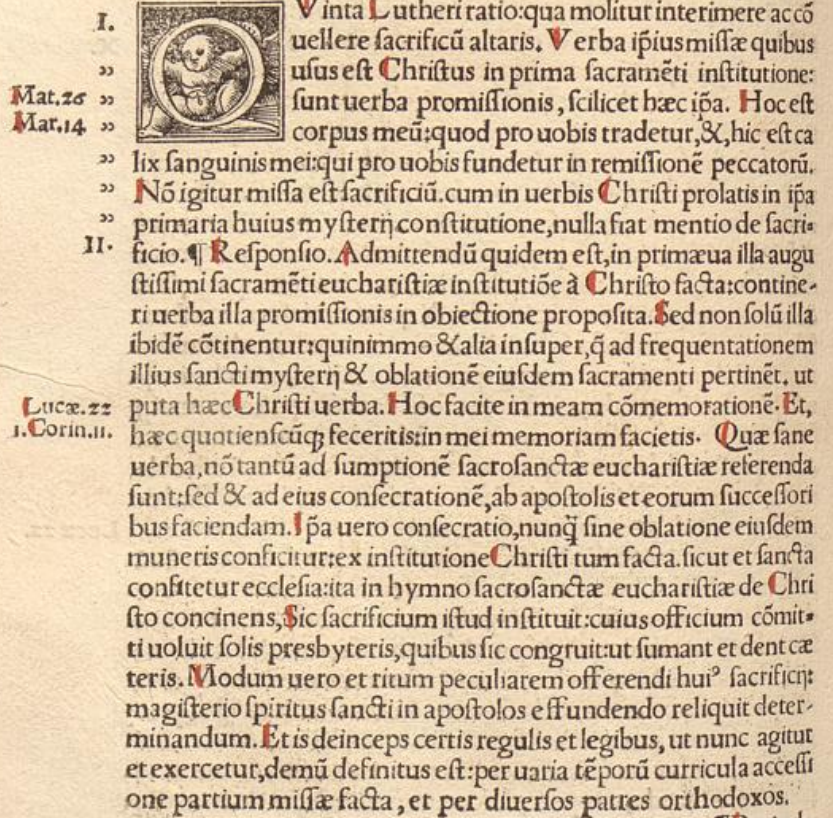 I.
QVinta Lutheri ratio:qua molitur interimere ac cō
uellere ſacrificū altaris. Verba ip̄ius miſſæ quibus
„ uſus eſt Chriſtus in prima ſacramēti inſtitutione:
Mat.26 „ ſunt uerba promiſſionis, ſcilicet hæc ip̄a. Hoc eſt
Mar.14 „ corpus meū:quod pro uobis tradetur,&,hic eſt ca
„ lix ſanguinis mei:qui pro uobis fundetur in remiſſionē peccatorū.
„ Nō igitur miſſa eſt ſacrificiū.cum in uerbis Chriſti prolatis in ip̄a
„ primaria huius myſterij conſtitutione,nulla fiat mentio de ſacri⸗
II. ficio.¶ Reſponſio.Admittendū quidem eſt,in primæua illa augu
ſtiſſimi ſacramēti euchariſtiæ inſtitutiōe à Chriſto facta:contine⸗
ri uerba illa promiſſionis in obiectione propoſita.Sed non ſolū illa
ibidē cōtinentur:quinimmo & alia inſuper,q̄ ad frequentationem
illius ſancti myſterij & oblationē eiuſdem ſacramenti pertinēt, ut
Lucæ.22 puta hæc Chriſti uerba. Hoc facite in meam cōmemorationē.Et,
1.Corin.11. hæc quotienſcūqꝫ feceritis:in mei memoriam facietis. Quæ ſane
uerba,nō tantū ad ſumptionē ſacroſanctæ euchariſtiæ referenda
ſunt:ſed & ad eius conſecrationē,ab apoſtolis et eorum ſucceſſori
bus faciendam.Ip̄a uero conſecratio,nunq̄ ſine oblatione eiuſdem
muneris conficitur:ex inſtitutione Chriſti tum facta.ſicut et ſancta
confitetur eccleſia:ita in hymno ſacroſanctæ euchariſtiæ de Chri
ſto concinens,Sic ſacrificium iſtud inſtituit:cuius officium cōmit⸗
ti uoluit ſolis presbyteris,quibus ſic congruit:ut ſumant et dent cæ
teris.Modum uero et ritum peculiarem offerendi huiꝰ ſacrificij:
magiſterio ſpiritus ſancti in apoſtolos effundendo reliquit deter⸗
minandum.Et is deinceps certis regulis et legibus, ut nunc agitur
et exercetur,demū definitus eſt:per uaria tēporū curricula acceſſi
one partium miſſæ facta, et per diuerſos patres orthodoxos.